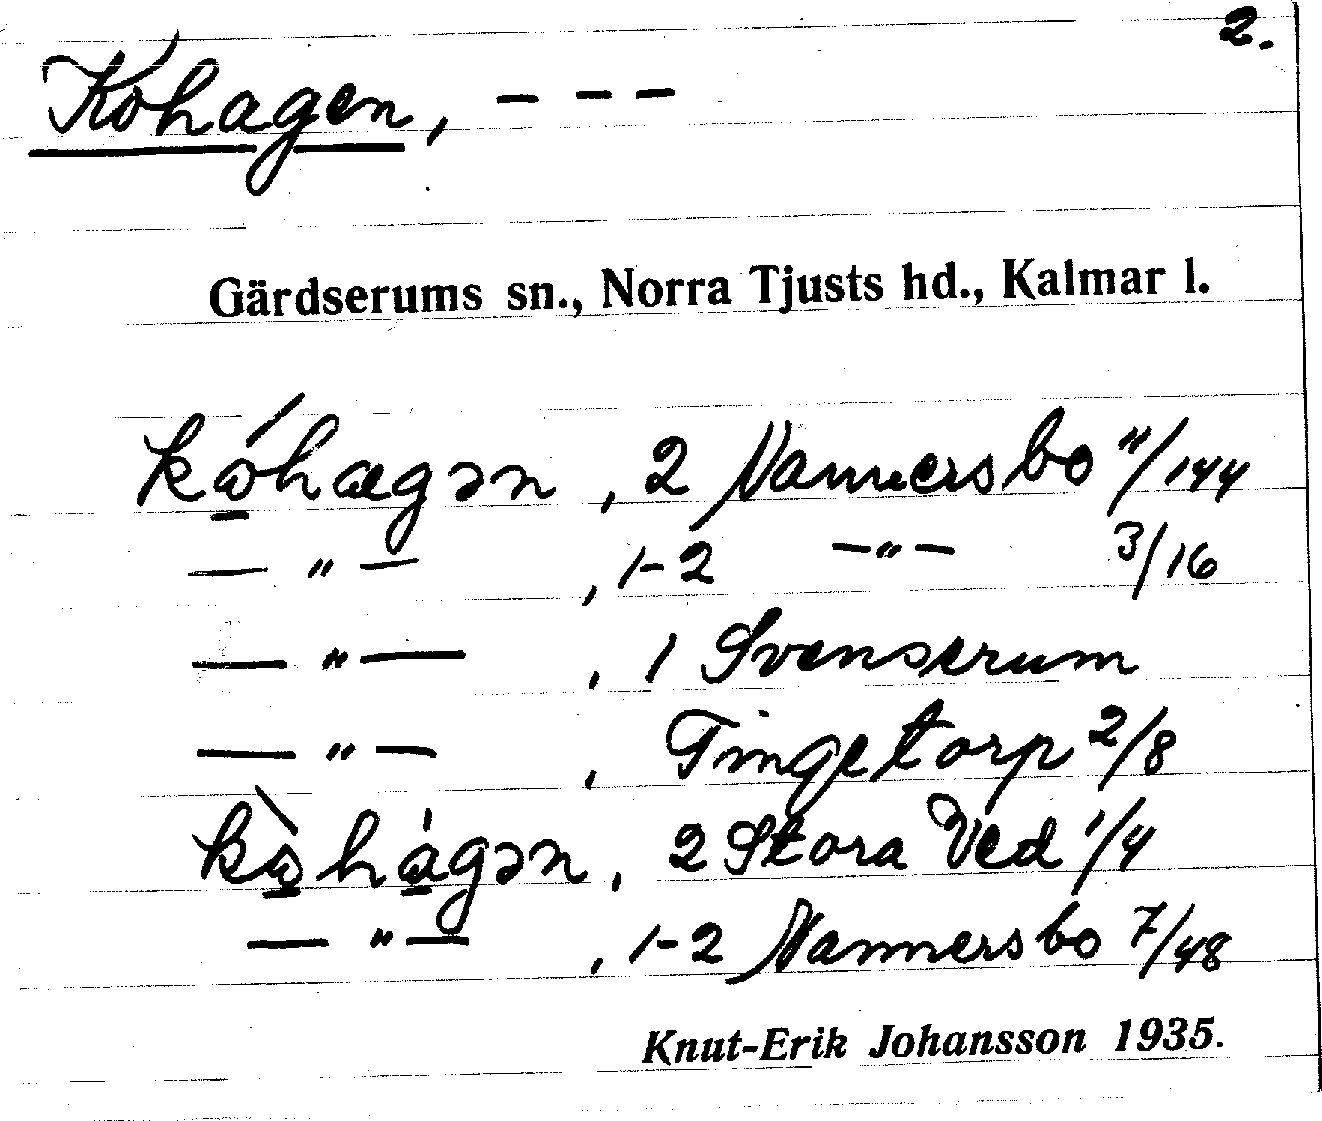 2.
Kohagen, – – –
Gärdserums sn., Norra Tjusts hd., Kalmar l.
kⱥ́hagən, 2 Nannersbo 11/144
— " —, 1-2 — " — 3/16
— " —, 1 Svenserum
— " —, Tingetorp 2/8
kò̱há̱gən, 2 Stora Ved 1/4
— " —, 1-2 Nannersbo 7/48
Knut-Erik Johansson 1935.